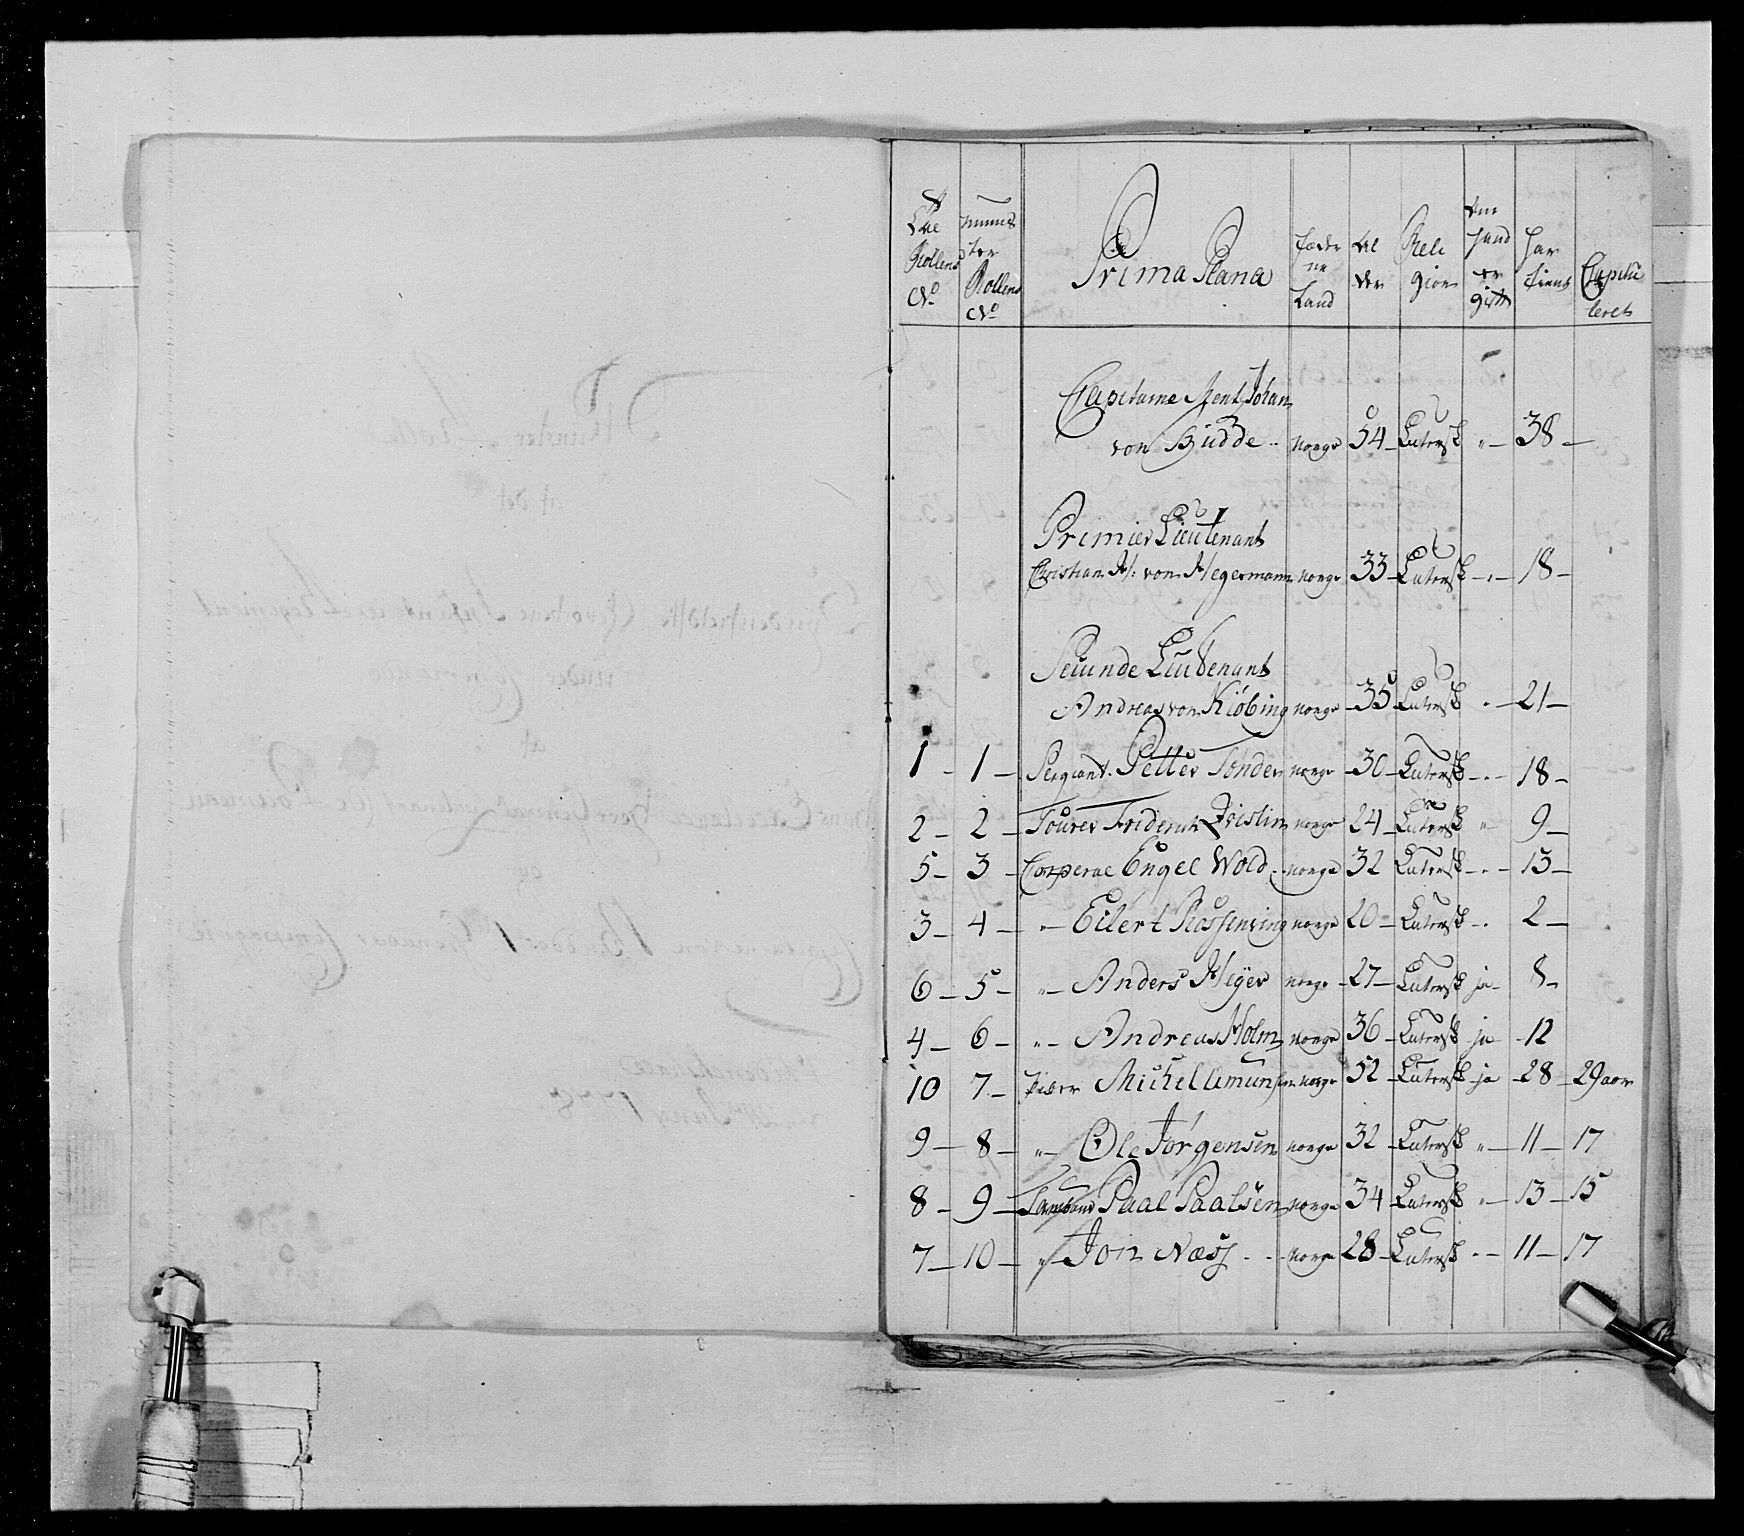 Rollens No
Munster Rollens No
Prima Plana
Fæderne Land
Alder
Religion
gift
Har tient
Capituleret
Capitaine Johan
von Budde norge 54 Lutersk " 38
Premier Lieutenant
Christian H: von Hegermann norge 33 Lutersk " 18
Secunde Lieutenant
Andreas von Kiöbing norge 35 Lutersk " 21
1 1 Sergiant Petter Tønder norge 30 Lutersk " 18
2 2 Fourer Friderich norge 24 Lutersk " 9
5 3 Corperal Engel Wold norge 32 Lutersk " 13
3 4 " Eilert norge 20 Lutersk " 2
6 5 " Anders Meÿer norge 27 Lutersk ja 8
4 6 " Andreas Holm norge 36 Lutersk ja 12
10 7 Piber Michel norge 52 Lutersk ja 28 29 aar
9 8 " Ole Jörgensen norge 32 Lutersk " 11 17
8 9 Tambour Paal Paalsen norge 34 Lutersk " 13 15
7 10 " Jon Næss norge 28 Lutersk " 11 17